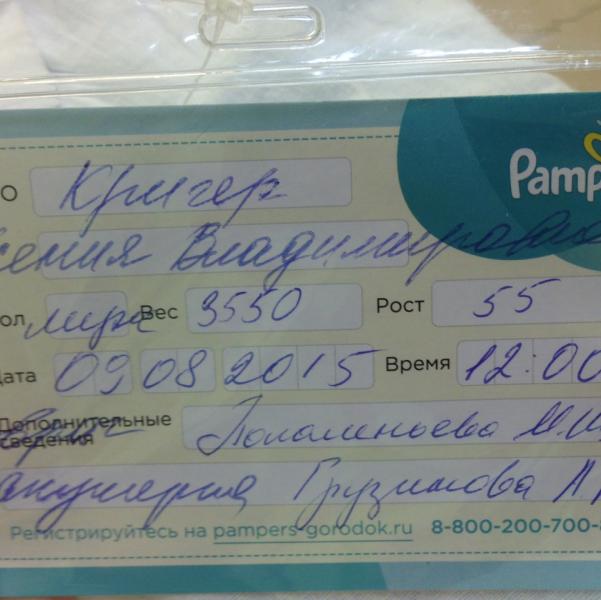 Pamp
О Кригер
сения Владимировна
ол мира Вес 3550 Рост 55
Дата 09 08 2015 Время 12:00
Дополнительные
сведения Врач
акушерка Грузинова А.
Регистрируйтесь на pampers-gorodok.ru 8-800-200-700-